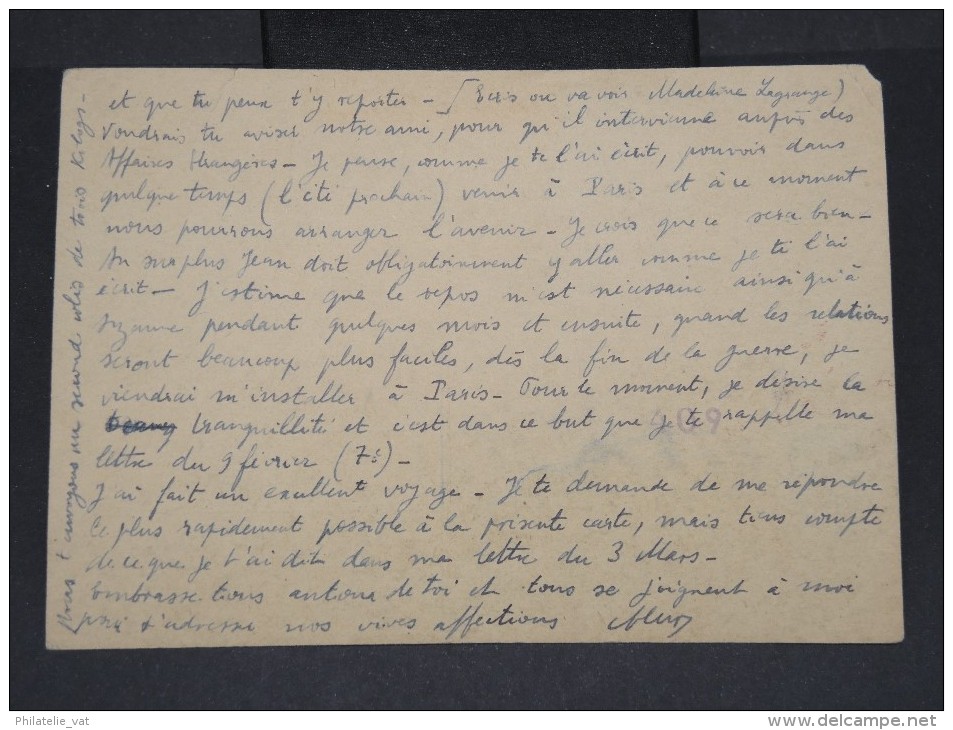 et que tu peux t'y reporter - (Ecris ou va voir Madeleine Lagrange)
Voudrais tu aviser notre ami, pour qu'il intervienne auprès des
Affaires Etrangères - Je pense, comme je te l'ai écrit, pouvoir dans
quelque temps (l'été prochain) venir à Paris et à ce moment
nous pourrons arranger l'avenir - Je crois que ce sera bien -
Au surplus Jean doit obligatoirement y aller comme je te l'ai
écrit - J'estime que le repos m'est nécessaire ainsi qu'à
Suzanne pendant quelques mois et ensuite, quand les relations
seront beaucoup plus faciles, dès la fin de la guerre, je
viendrai m'installer à Paris - Pour le moment, je désire la
tranquillité et c'est dans ce but que je te rappelle ma
lettre du 9 février (7è) -
J'ai fait un excellent voyage - Je te demande de me répondre
le plus rapidement possible à la présente carte, mais tiens compte
de ce que je t'ai dit dans ma lettre du 3 Mars -
Embrasse tous autour de toi et tous se joignent à moi
pour t'adresser nos vives affections
Nous t'envoyons un second colis de trois Kilogs -
409
Philatelie_vat
©delcampe.net